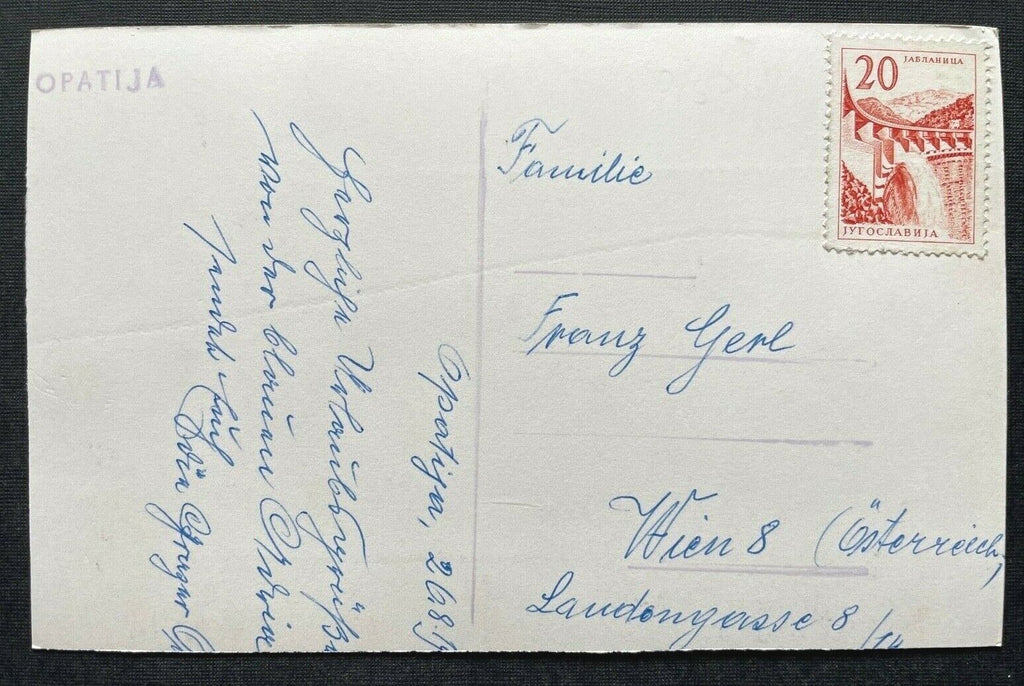 OPATIJA
20
ЈАБЛАНИЦА
ЈУГОСЛАВИЈА
Opatija, 26.8.
Herzliche Urlaubsgrüße
von der blauen Adria
sendet Euch
Familie
Franz Gerl
Wien 8 (Österreich)
Laudongasse 8/14